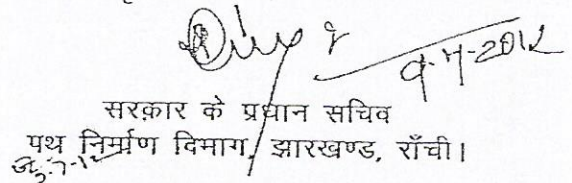 9-7-2012
सरकार के प्रधान सचिव
पथ निर्माण विभाग, झारखण्ड, राँची।